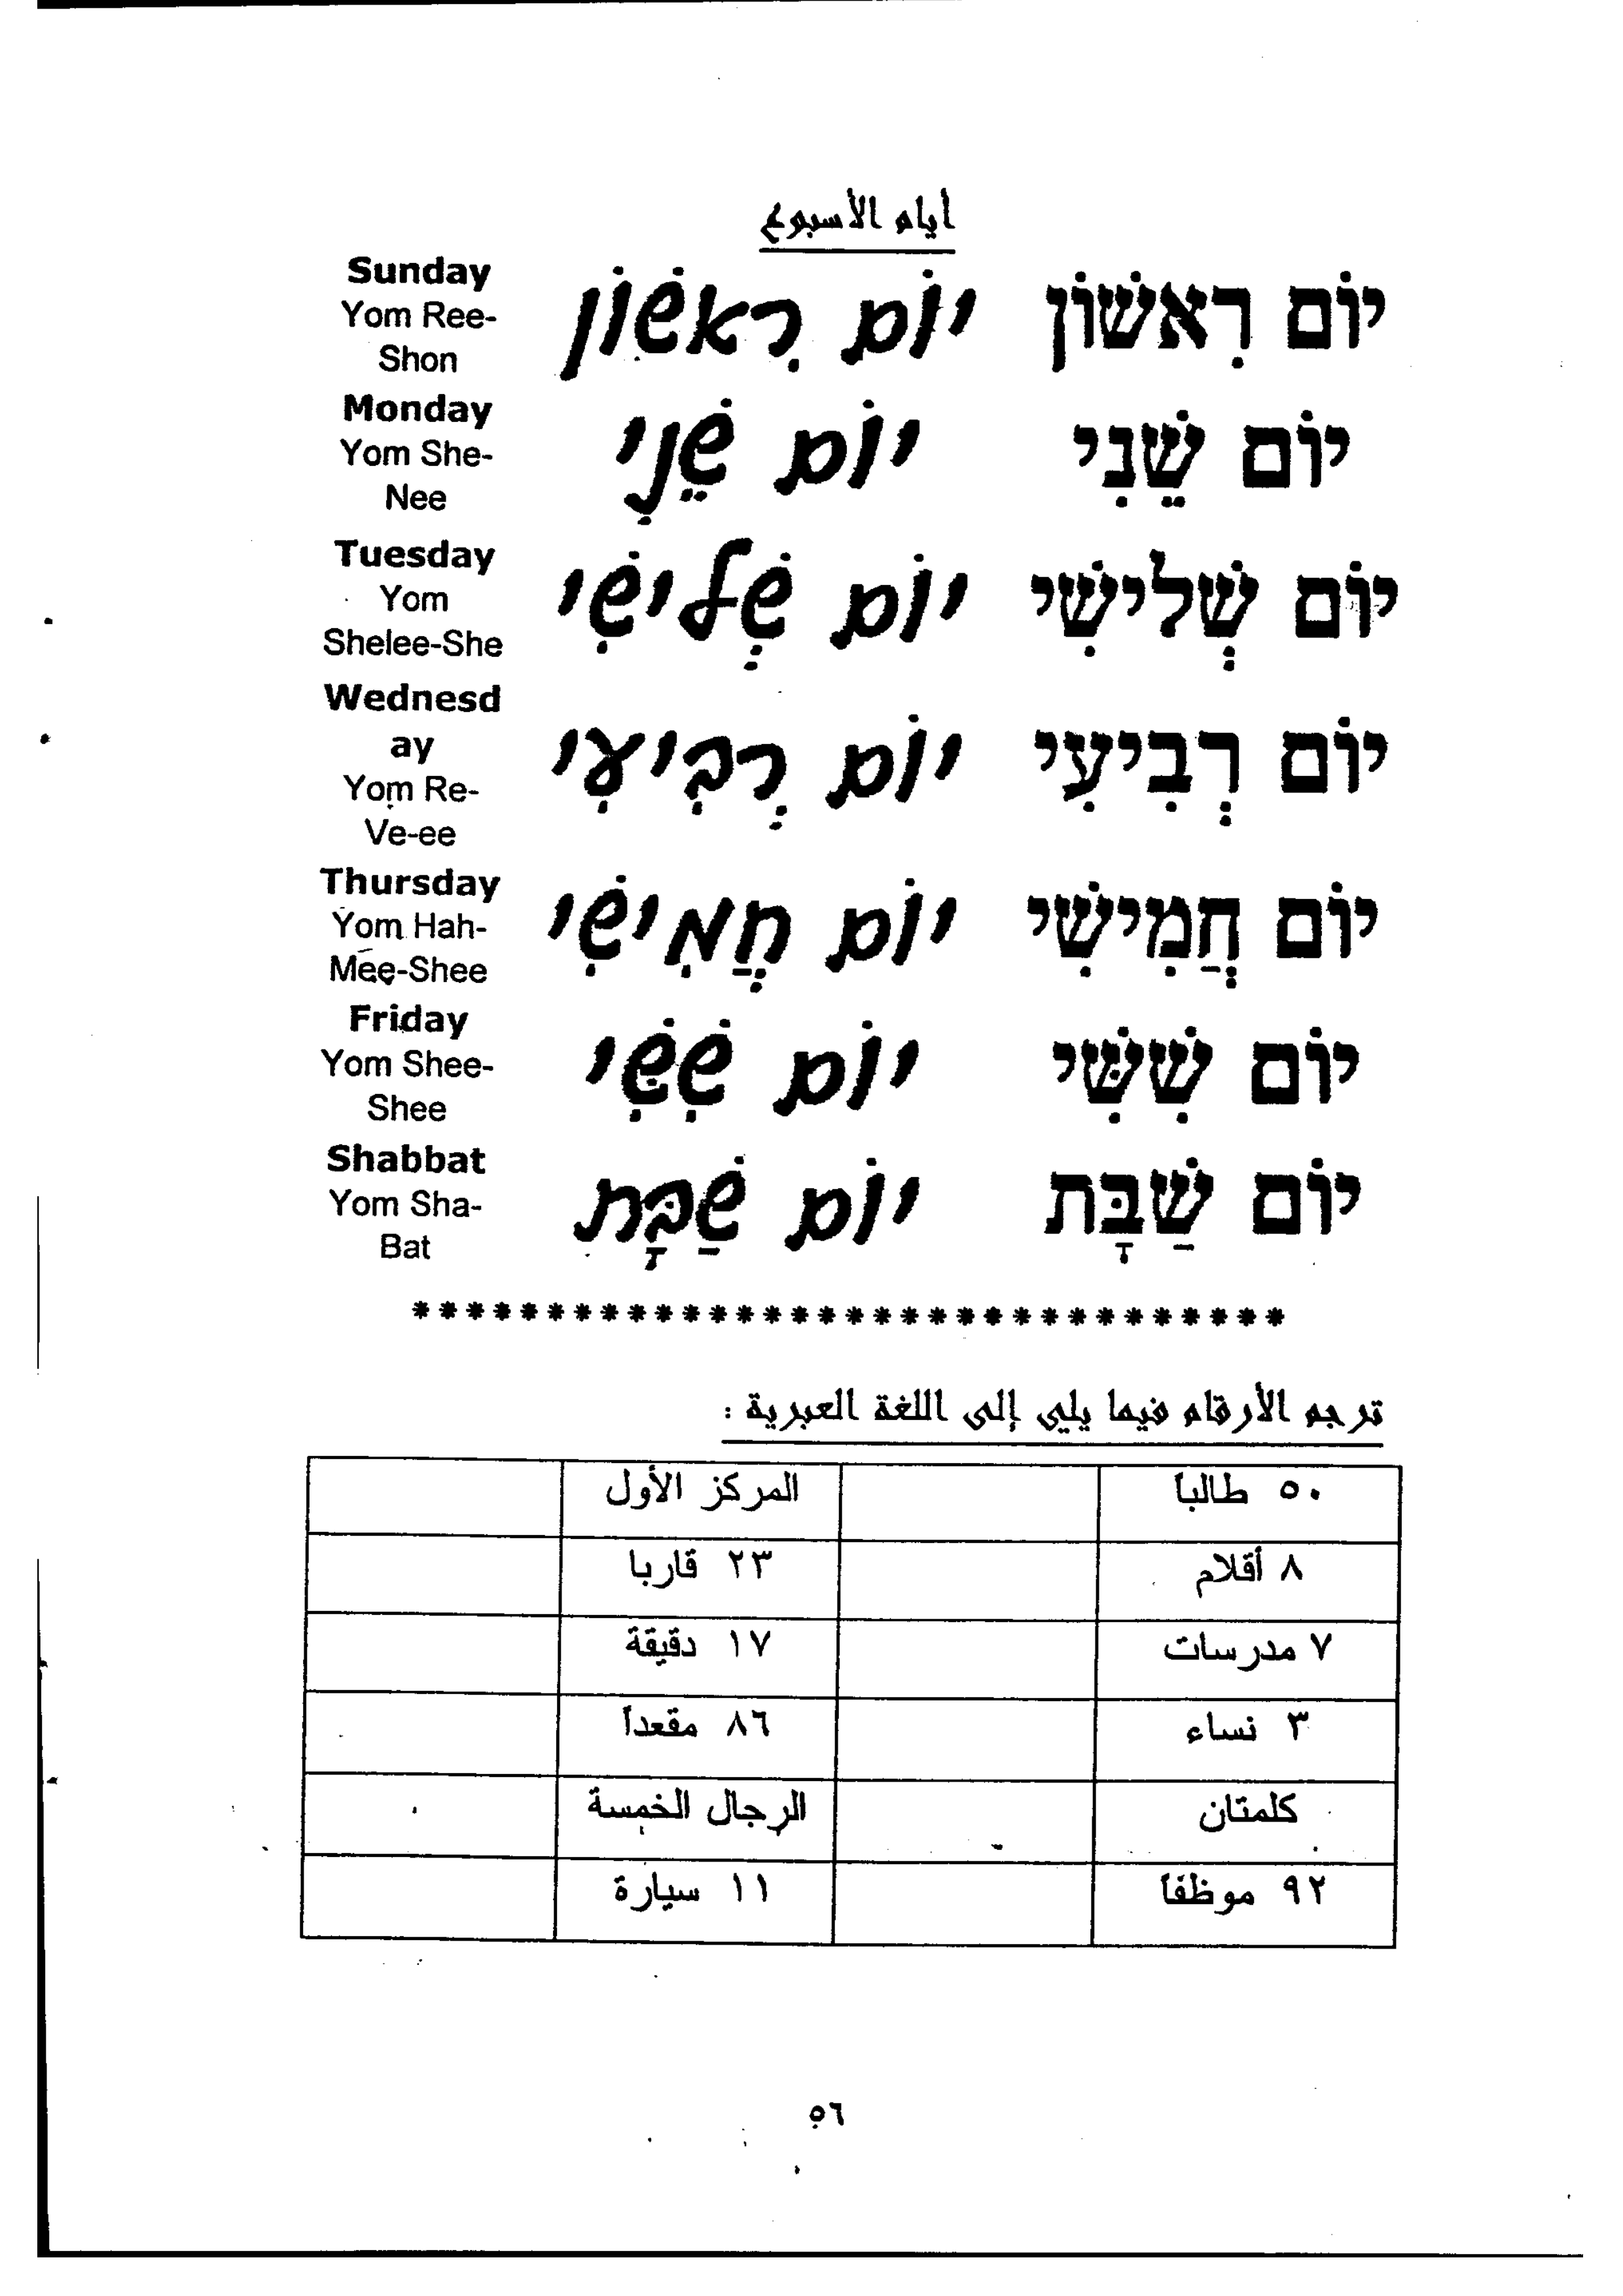 أيام الأسبوع
יוֹם רִאשׁוֹן יוֹם רִאשׁוֹן Sunday
Yom Ree-
Shon
יוֹם שֵׁנִי יוֹם שֵׁנִי Monday
Yom She-
Nee
יוֹם שְׁלִישִׁי יוֹם שְׁלִישִׁי Tuesday
Yom
Shelee-She
יוֹם רְבִיעִי יוֹם רְבִיעִי Wednesd
ay
Yom Re-
Ve-ee
יוֹם חֲמִישִׁי יוֹם חֲמִישִׁי Thursday
Yom Hah-
Mee-Shee
יוֹם שִׁשִּׁי יוֹם שִׁשִּׁי Friday
Yom Shee-
Shee
יוֹם שַׁבָּת יוֹם שַׁבָּת Shabbat
Yom Sha-
Bat
********************************
ترجم الأرقام فيما يلي إلى اللغة العبرية :
٥٠ طالباً المركز الأول
٨ أقلام ٢٣ قاربا
٧ مدرسات ١٧ دقيقة
٣ نساء ٨٦ مقعداً
كلمتان الرجال الخمسة
٩٢ موظفاً ١١ سيارة
٥٦